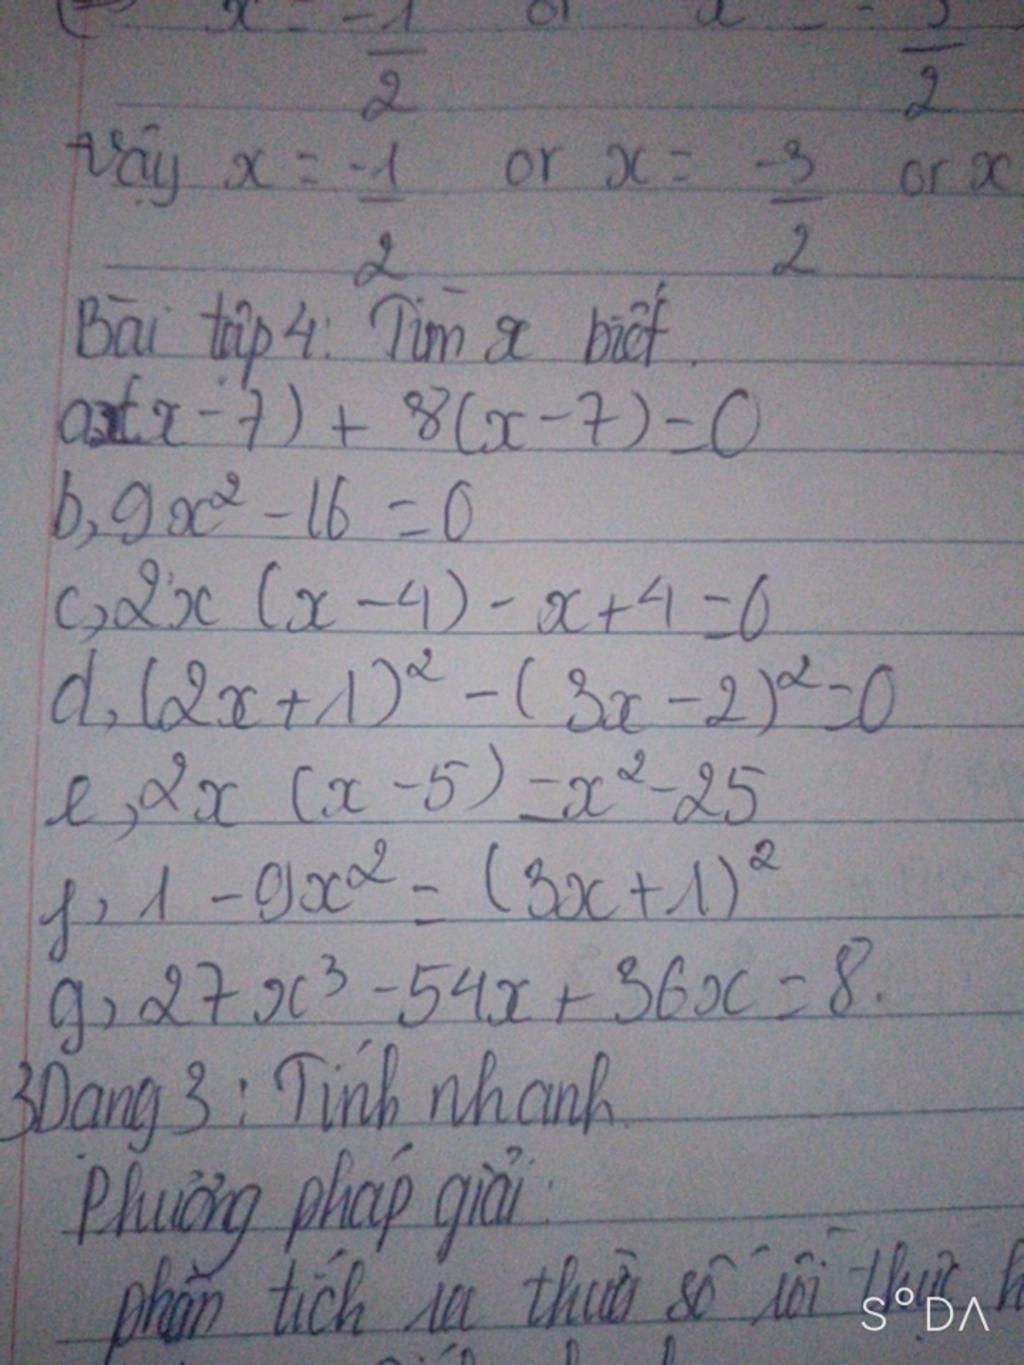 x = -1/2 or x = -3/2
Vậy x = -1/2 or x = -3/2 or x
Bài tập 4: Tìm x biết.
a, x(x-7) + 8(x-7)=0
b, 9x² - 16 = 0
c, 2x (x-4) - x+4=0
d, (2x+1)² - (3x-2)²=0
e, 2x (x-5) = x² - 25
f, 1 - 9x² = (3x+1)²
g, 27x³ - 54x + 36x = 8.
3 Dạng 3: Tính nhanh
Phương pháp giải:
phân tích ra thừa số rồi thực
SODA